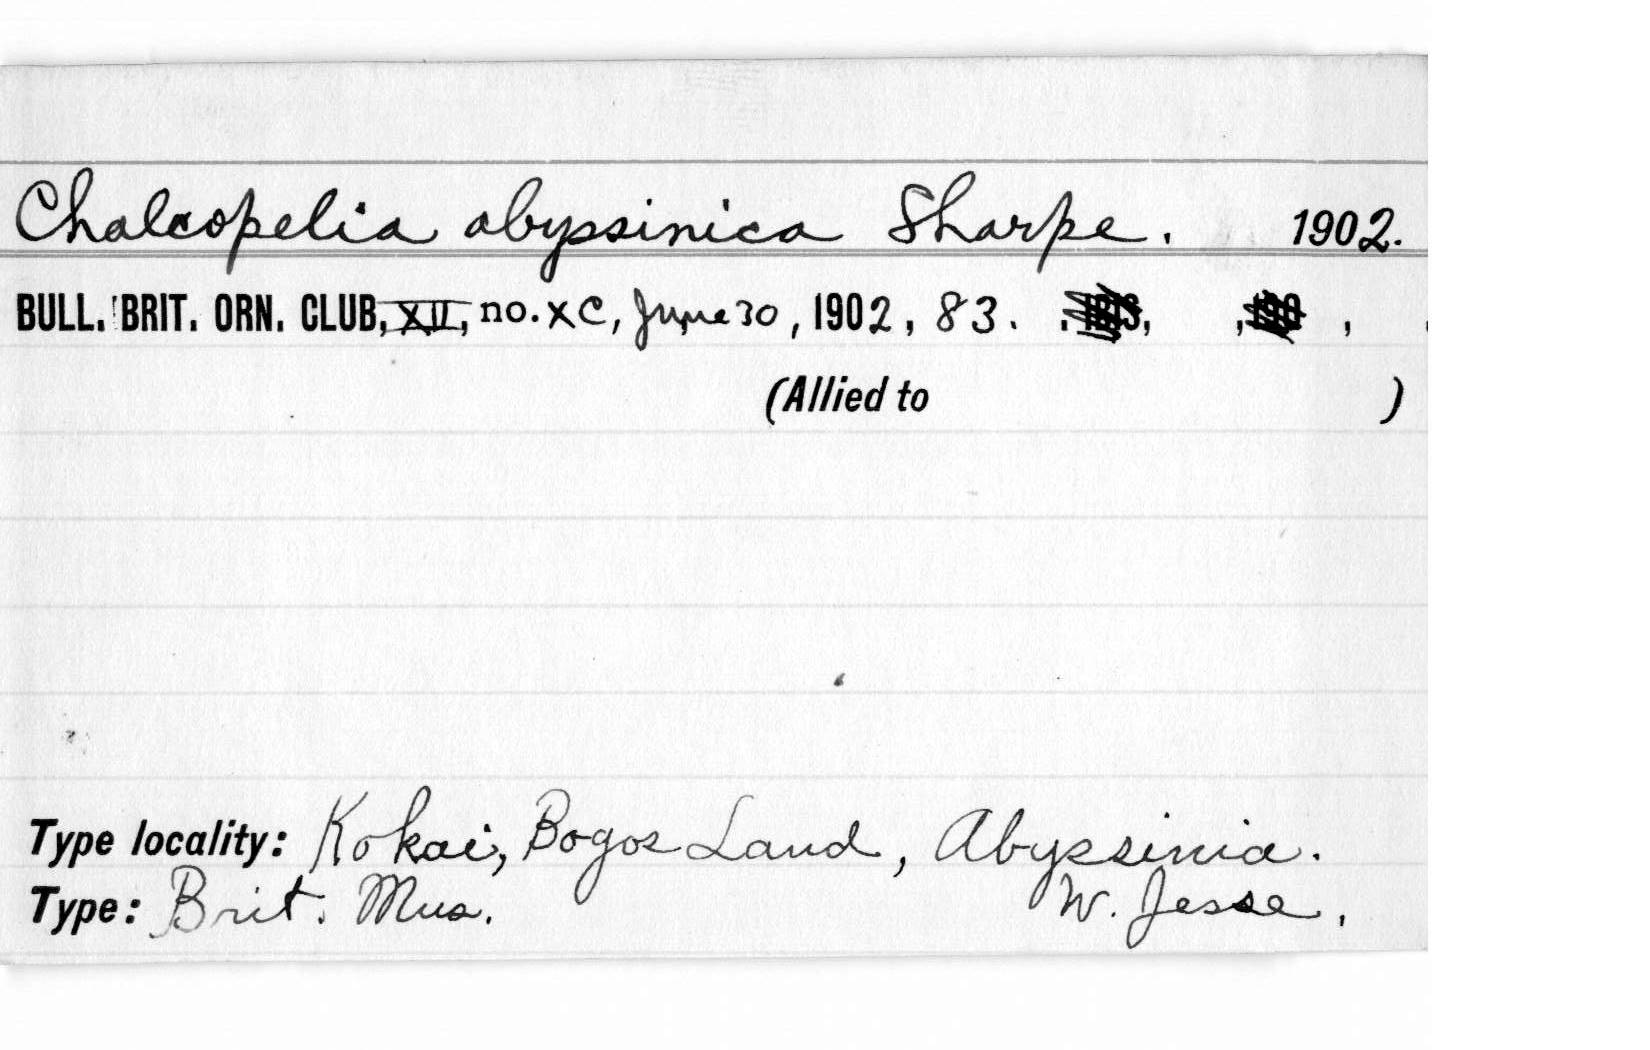 Chalcopelia abyssinica Sharpe. 1902.
BULL. BRIT. ORN. CLUB, XII, no. XC, June 30, 1902, 83. . , , ,
(Allied to )
Type locality: Kokai, Bogos Land, Abyssinia.
Type: Brit. Mus. W. Jesse.